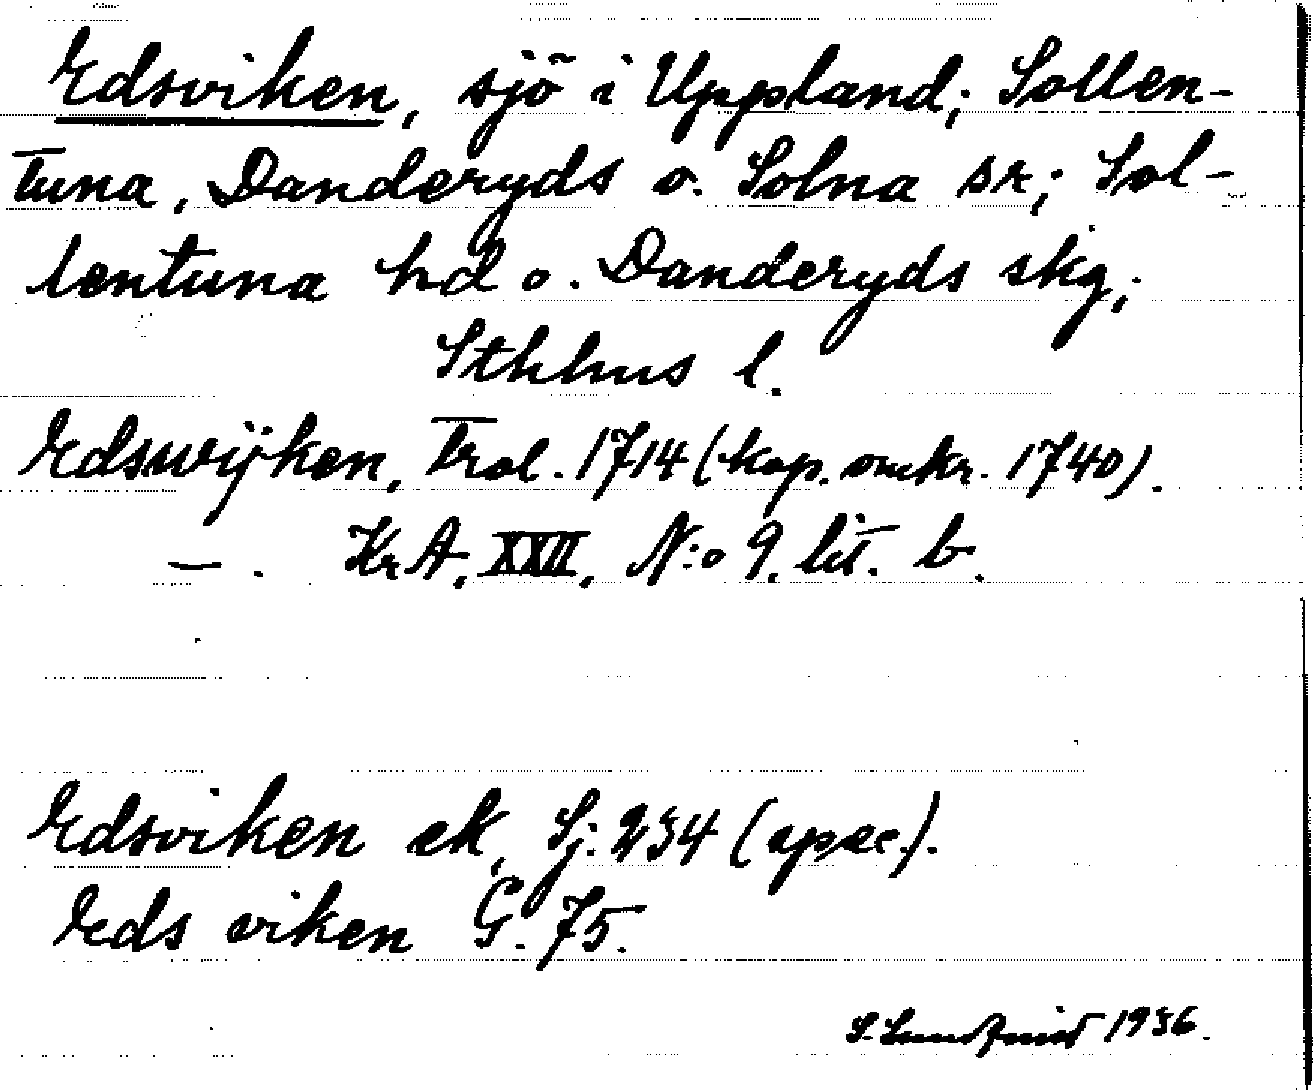 Edsviken, sjö i Uppland; Sollen-
tuna, Danderyds o. Solna sr; Sol-
lentuna hd o. Danderyds skg,
Sthlms l.
Edswijken, Trol. 1714 (kop. omkr. 1740).
— . KrA, XXII, N:o 9. lit. b.
Edsviken ek, Sj. 234 (spec.).
Eds viken G. 75.
S. Lundqvist 1936.